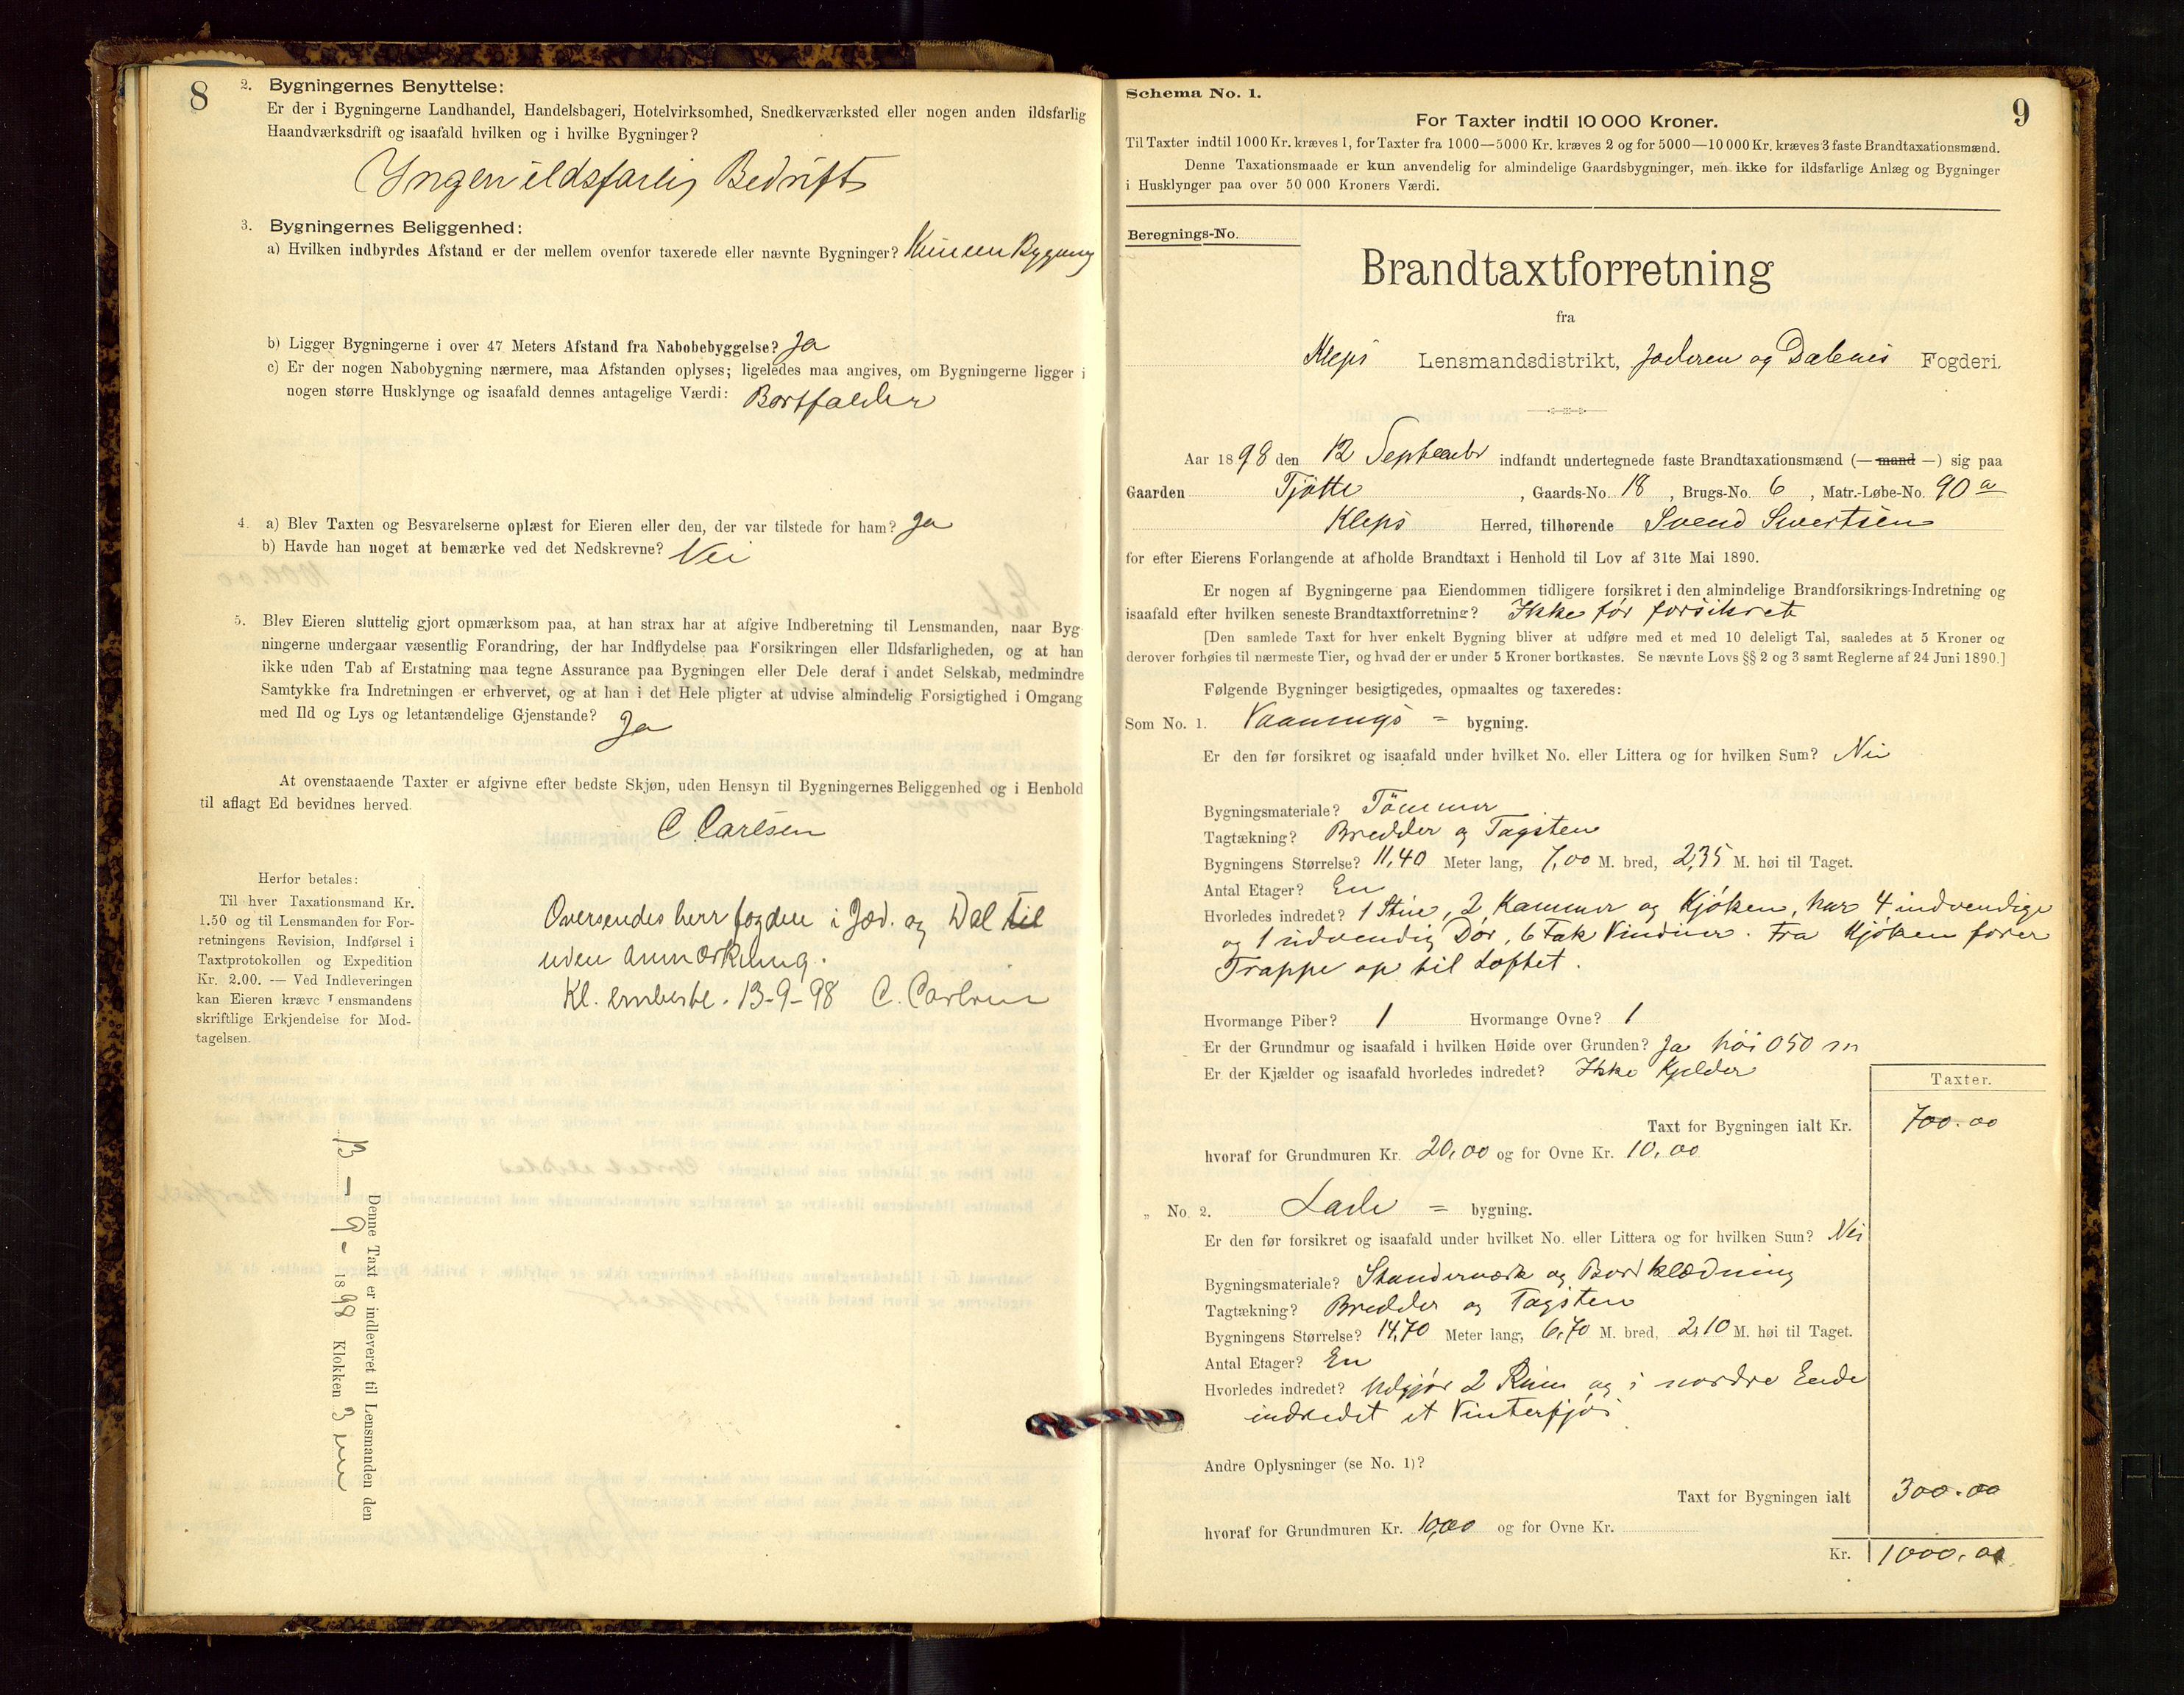 8
2. Bygningernes Benyttelse:
Er der i Bygningerne Landhandel, Handelsbageri, Hotelvirksomhed, Snedkerværksted eller nogen anden ildsfarlig
Haandværksdrift og isaafald hvilken og i hvilke Bygninger?
Yngen ildsfarlig Bedrift
3. Bygningernes Beliggenhed:
a) Hvilken indbyrdes Afstand er der mellem ovenfor taxerede eller nævnte Bygninger? Kun en Bygning
b) Ligger Bygningerne i over 47 Meters Afstand fra Nabobebyggelse? Ja
c) Er der nogen Nabobygning nærmere, maa Afstanden oplyses; ligeledes maa angives, om Bygningerne ligger i
nogen større Husklynge og isaafald dennes antagelige Værdi: Bortfalder
4. a) Blev Taxten og Besvarelserne oplæst for Eieren eller den, der var tilstede for ham? Ja
b) Havde han noget at bemærke ved det Nedskrevne? Nei
5. Blev Eieren sluttelig gjort opmærksom paa, at han strax har at afgive Indberetning til Lensmanden, naar Byg
ningerne undergaar væsentlig Forandring, der har Indflydelse paa Forsikringen eller Ildsfarligheden, og at han
ikke uden Tab af Erstatning maa tegne Assurance paa Bygningen eller Dele deraf i andet Selskab, medmindre
Samtykke fra Indretningen er erhvervet, og at han i det Hele pligter at udvise almindelig Forsigtighed i Omgang
med Ild og Lys og letantændelige Gjenstande? Ja
At ovenstaaende Taxter er afgivne efter bedste Skjøn, uden Hensyn til Bygningernes Beliggenhed og i Henhold
til aflagt Ed bevidnes herved.
C Carlsen
Herfor betales:
Til hver Taxationsmand Kr.
1.50 og til Lensmanden for For-
retningens Revision, Indførsel i
Taxtprotokollen og Expedition
Kr. 2.00. — Ved Indleveringen
kan Eieren kræve Lensmandens
skriftlige Erkjendelse for Mod-
tagelsen.
Oversendes herr fogden i Jæd. og Dal til
uden anmærkning.
Kl. 13-9-98 C. Carlsen
Denne Taxt er indleveret til Lensmanden den
13 - 9 - 1898 Klokken 3 em
Schema No. 1.
9
For Taxter indtil 10 000 Kroner.
Til Taxter indtil 1000 Kr. kræves 1, for Taxter fra 1000—5000 Kr. kræves 2 og for 5000—10 000 Kr. kræves 3 faste Brandtaxationsmænd.
Denne Taxationsmaade er kun anvendelig for almindelige Gaardsbygninger, men ikke for ildsfarlige Anlæg og Bygninger
i Husklynger paa over 50 000 Kroners Værdi.
Beregnings-No.
Brandtaxtforretning
fra
Kleps Lensmandsdistrikt, Jæderen og Dalenes Fogderi.
Aar 1898 den 12 September indfandt undertegnede faste Brandtaxationsmænd (— mand —) sig paa
Gaarden Tjøtte, Gaards-No. 18, Brugs-No. 6, Matr.-Løbe-No. 90 a
Kleps Herred, tilhørende Svend Sivertsen
for efter Eierens Forlangende at afholde Brandtaxt i Henhold til Lov af 31te Mai 1890.
Er nogen af Bygningerne paa Eiendommen tidligere forsikret i den almindelige Brandforsikrings-Indretning og
isaafald efter hvilken seneste Brandtaxtforretning? Ikke før forsikret
[Den samlede Taxt for hver enkelt Bygning bliver at udføre med et med 10 deleligt Tal, saaledes at 5 Kroner og
derover forhøies til nærmeste Tier, og hvad der er under 5 Kroner bortkastes. Se nævnte Lovs §§ 2 og 3 samt Reglerne af 24 Juni 1890.]
Følgende Bygninger besigtigedes, opmaaltes og taxeredes:
Som No. 1. Vaanings = bygning.
Er den før forsikret og isaafald under hvilket No. eller Littera og for hvilken Sum? Nei
Bygningsmateriale? Tömmer
Tagtækning? Bredder og Tagsten
Bygningens Størrelse? 11,40 Meter lang, 7,00 M. bred, 2,35 M. høi til Taget.
Antal Etager? En
Hvorledes indredet? 1 Stue, 2 Kammer og Kjøken, har 4 indvendige
og 1 udvendig Dør, 6 Fak Vinduer. Fra Kjøken fører
Trappe op til Loftet.
Hvormange Piber? 1 Hvormange Ovne? 1
Er der Grundmur og isaafald i hvilken Høide over Grunden? Ja høi 050 m
Er der Kjælder og isaafald hvorledes indredet? Ikke Kjelder
Taxter.
Taxt for Bygningen ialt Kr. 700.00
hvoraf for Grundmuren Kr. 20,00 og for Ovne Kr. 10,00
„ No 2. Lade = bygning.
Er den før forsikret og isaafald under hvilket No. eller Littera og for hvilken Sum? Nei
Bygningsmateriale? Standerværk og Bordklædning
Tagtækning? Bredder og Tagsten
Bygningens Størrelse? 14,70 Meter lang, 6,70 M. bred, 2,10 M. høi til Taget.
Antal Etager? En
Hvorledes indredet? Udgjør 2 Rum og i nordre Ende
indredet et Vinterfjøs
Andre Oplysninger (se No. 1)?
Taxt for Bygningen ialt 300.00
hvoraf for Grundmuren Kr. 10,00 og for Ovne Kr.
Kr. 1000.00